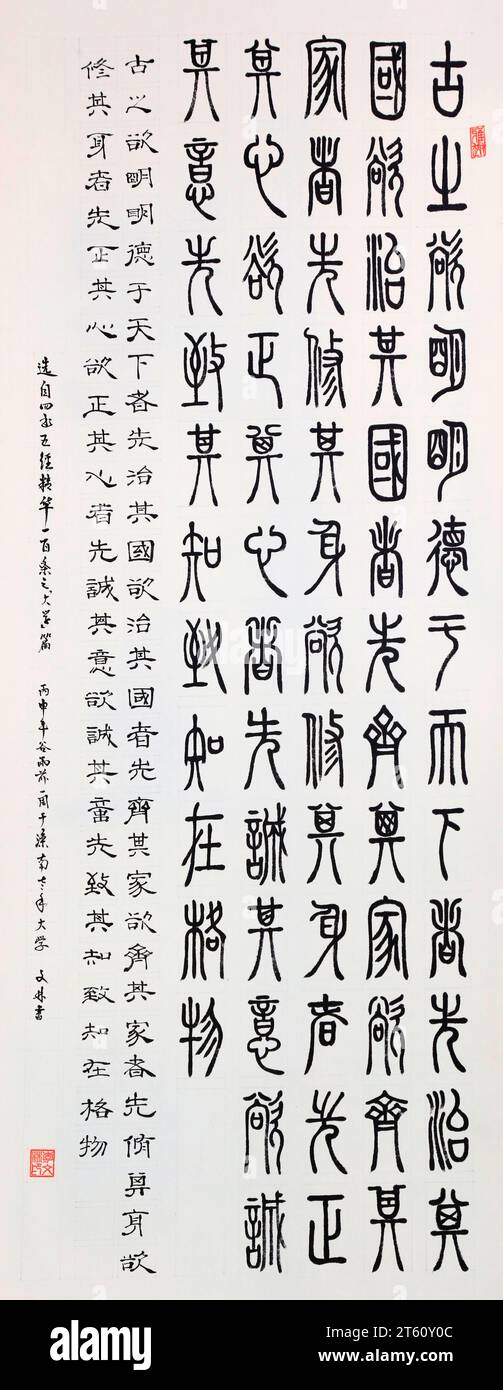 古之欲明明德于天下者先治其
國欲治其國者先齊其家欲齊其
家者先修其身欲修其身者先正
其心欲正其心者先誠其意欲誠
其意先致其知致知在格物
古之欲明明德于天下者先治其國欲治其國者先齊其家欲齊其家者先脩其身欲
修其身者先正其心欲正其心者先誠其意欲誠其意先致其知致知在格物
选自四书五经精华一百条之大学篇 丙申年谷雨前一周于滦南老年大学 文林書
alamy
Image ID: 2T60Y0C
www.alamy.com